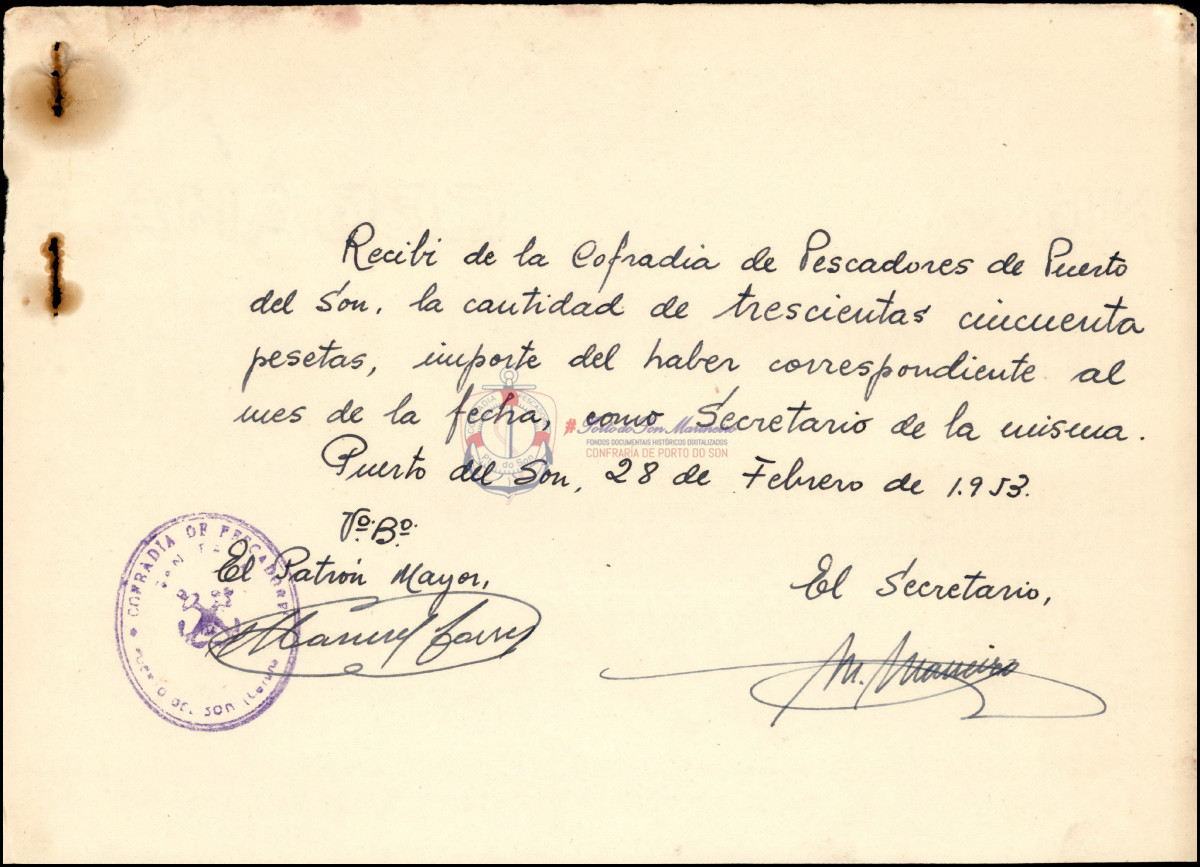 Recibi de la Cofradia de Pescadores de Puerto
del Son, la cantidad de trescientas cincuenta
pesetas, importe del haber correspondiente al
mes de la fecha, como Secretario de la misma.
Puerto del Son, 28 de Febrero de 1.953.
Vº.Bº.
El Patrón Mayor,
El Secretario,
Manuel
M. Maneiro
COFRADIA DE PESCADORES
PUERTO DEL SON
#Porto do Son Marineiro
FONDOS DOCUMENTAIS HISTÓRICOS DIXITALIZADOS
CONFRARÍA DE PORTO DO SON
Porto do Son